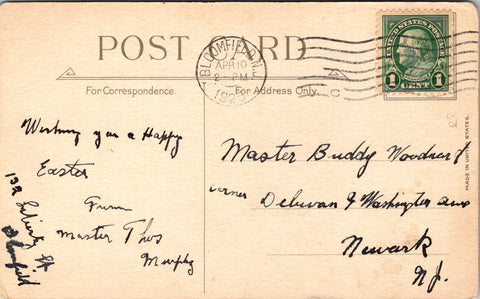 POST CARD
BLOOMFIELD, N.J.
APR 10
2 - PM
UNITED STATES POSTAGE
1 CENT 1
For Correspondence.
For Address Only.
MADE IN UNITED STATES.
Wishing you a Happy
Easter
From
Master Thos
Murphy
132 Liberty St
Bloomfield
Master Buddy
corner Delavan & Washington aves
Newark
N.J.